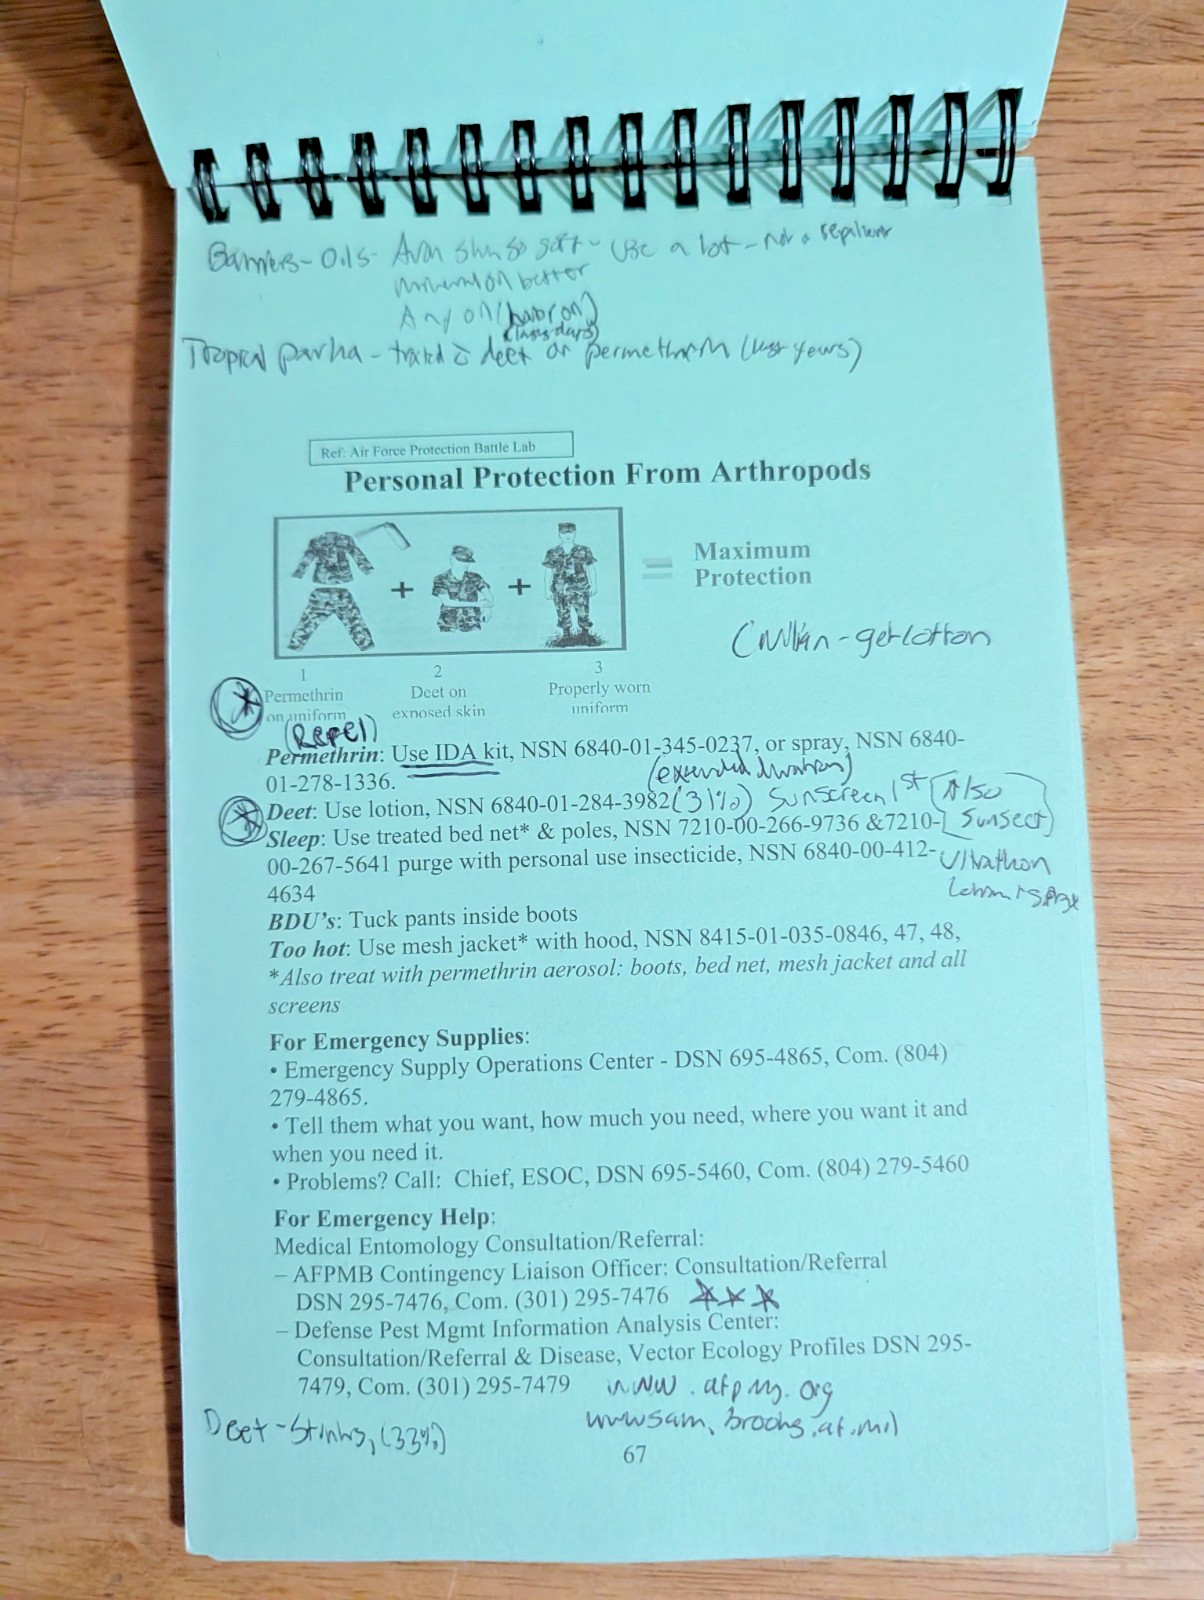 Barriers - Oils - Avon skin so soft - Use a lot - not a repellent
mineral oil better
Any oil (baby oil)
(lasts days)
Tropical parka - treated c̄ deet or permethrin (last years)
Ref: Air Force Protection Battle Lab
Personal Protection From Arthropods
+ + = Maximum
Protection
Civilian - get lotion
1 2 3
Permethrin Deet on Properly worn
on uniform exposed skin uniform
(Repel)
Permethrin: Use IDA kit, NSN 6840-01-345-0237, or spray, NSN 6840-
01-278-1336. (extended duration)
Deet: Use lotion, NSN 6840-01-284-3982 (31%) Sunscreen 1st [Also
Sleep: Use treated bed net* & poles, NSN 7210-00-266-9736 &7210- Sunsect]
00-267-5641 purge with personal use insecticide, NSN 6840-00-412- Ultrathon
4634
BDU's: Tuck pants inside boots
Too hot: Use mesh jacket* with hood, NSN 8415-01-035-0846, 47, 48,
*Also treat with permethrin aerosol: boots, bed net, mesh jacket and all
screens
For Emergency Supplies:
• Emergency Supply Operations Center - DSN 695-4865, Com. (804)
279-4865.
• Tell them what you want, how much you need, where you want it and
when you need it.
• Problems? Call: Chief, ESOC, DSN 695-5460, Com. (804) 279-5460
For Emergency Help:
Medical Entomology Consultation/Referral:
– AFPMB Contingency Liaison Officer: Consultation/Referral
DSN 295-7476, Com. (301) 295-7476
– Defense Pest Mgmt Information Analysis Center:
Consultation/Referral & Disease, Vector Ecology Profiles DSN 295-
7479, Com. (301) 295-7479
Deet - Stinks, (33%)
67